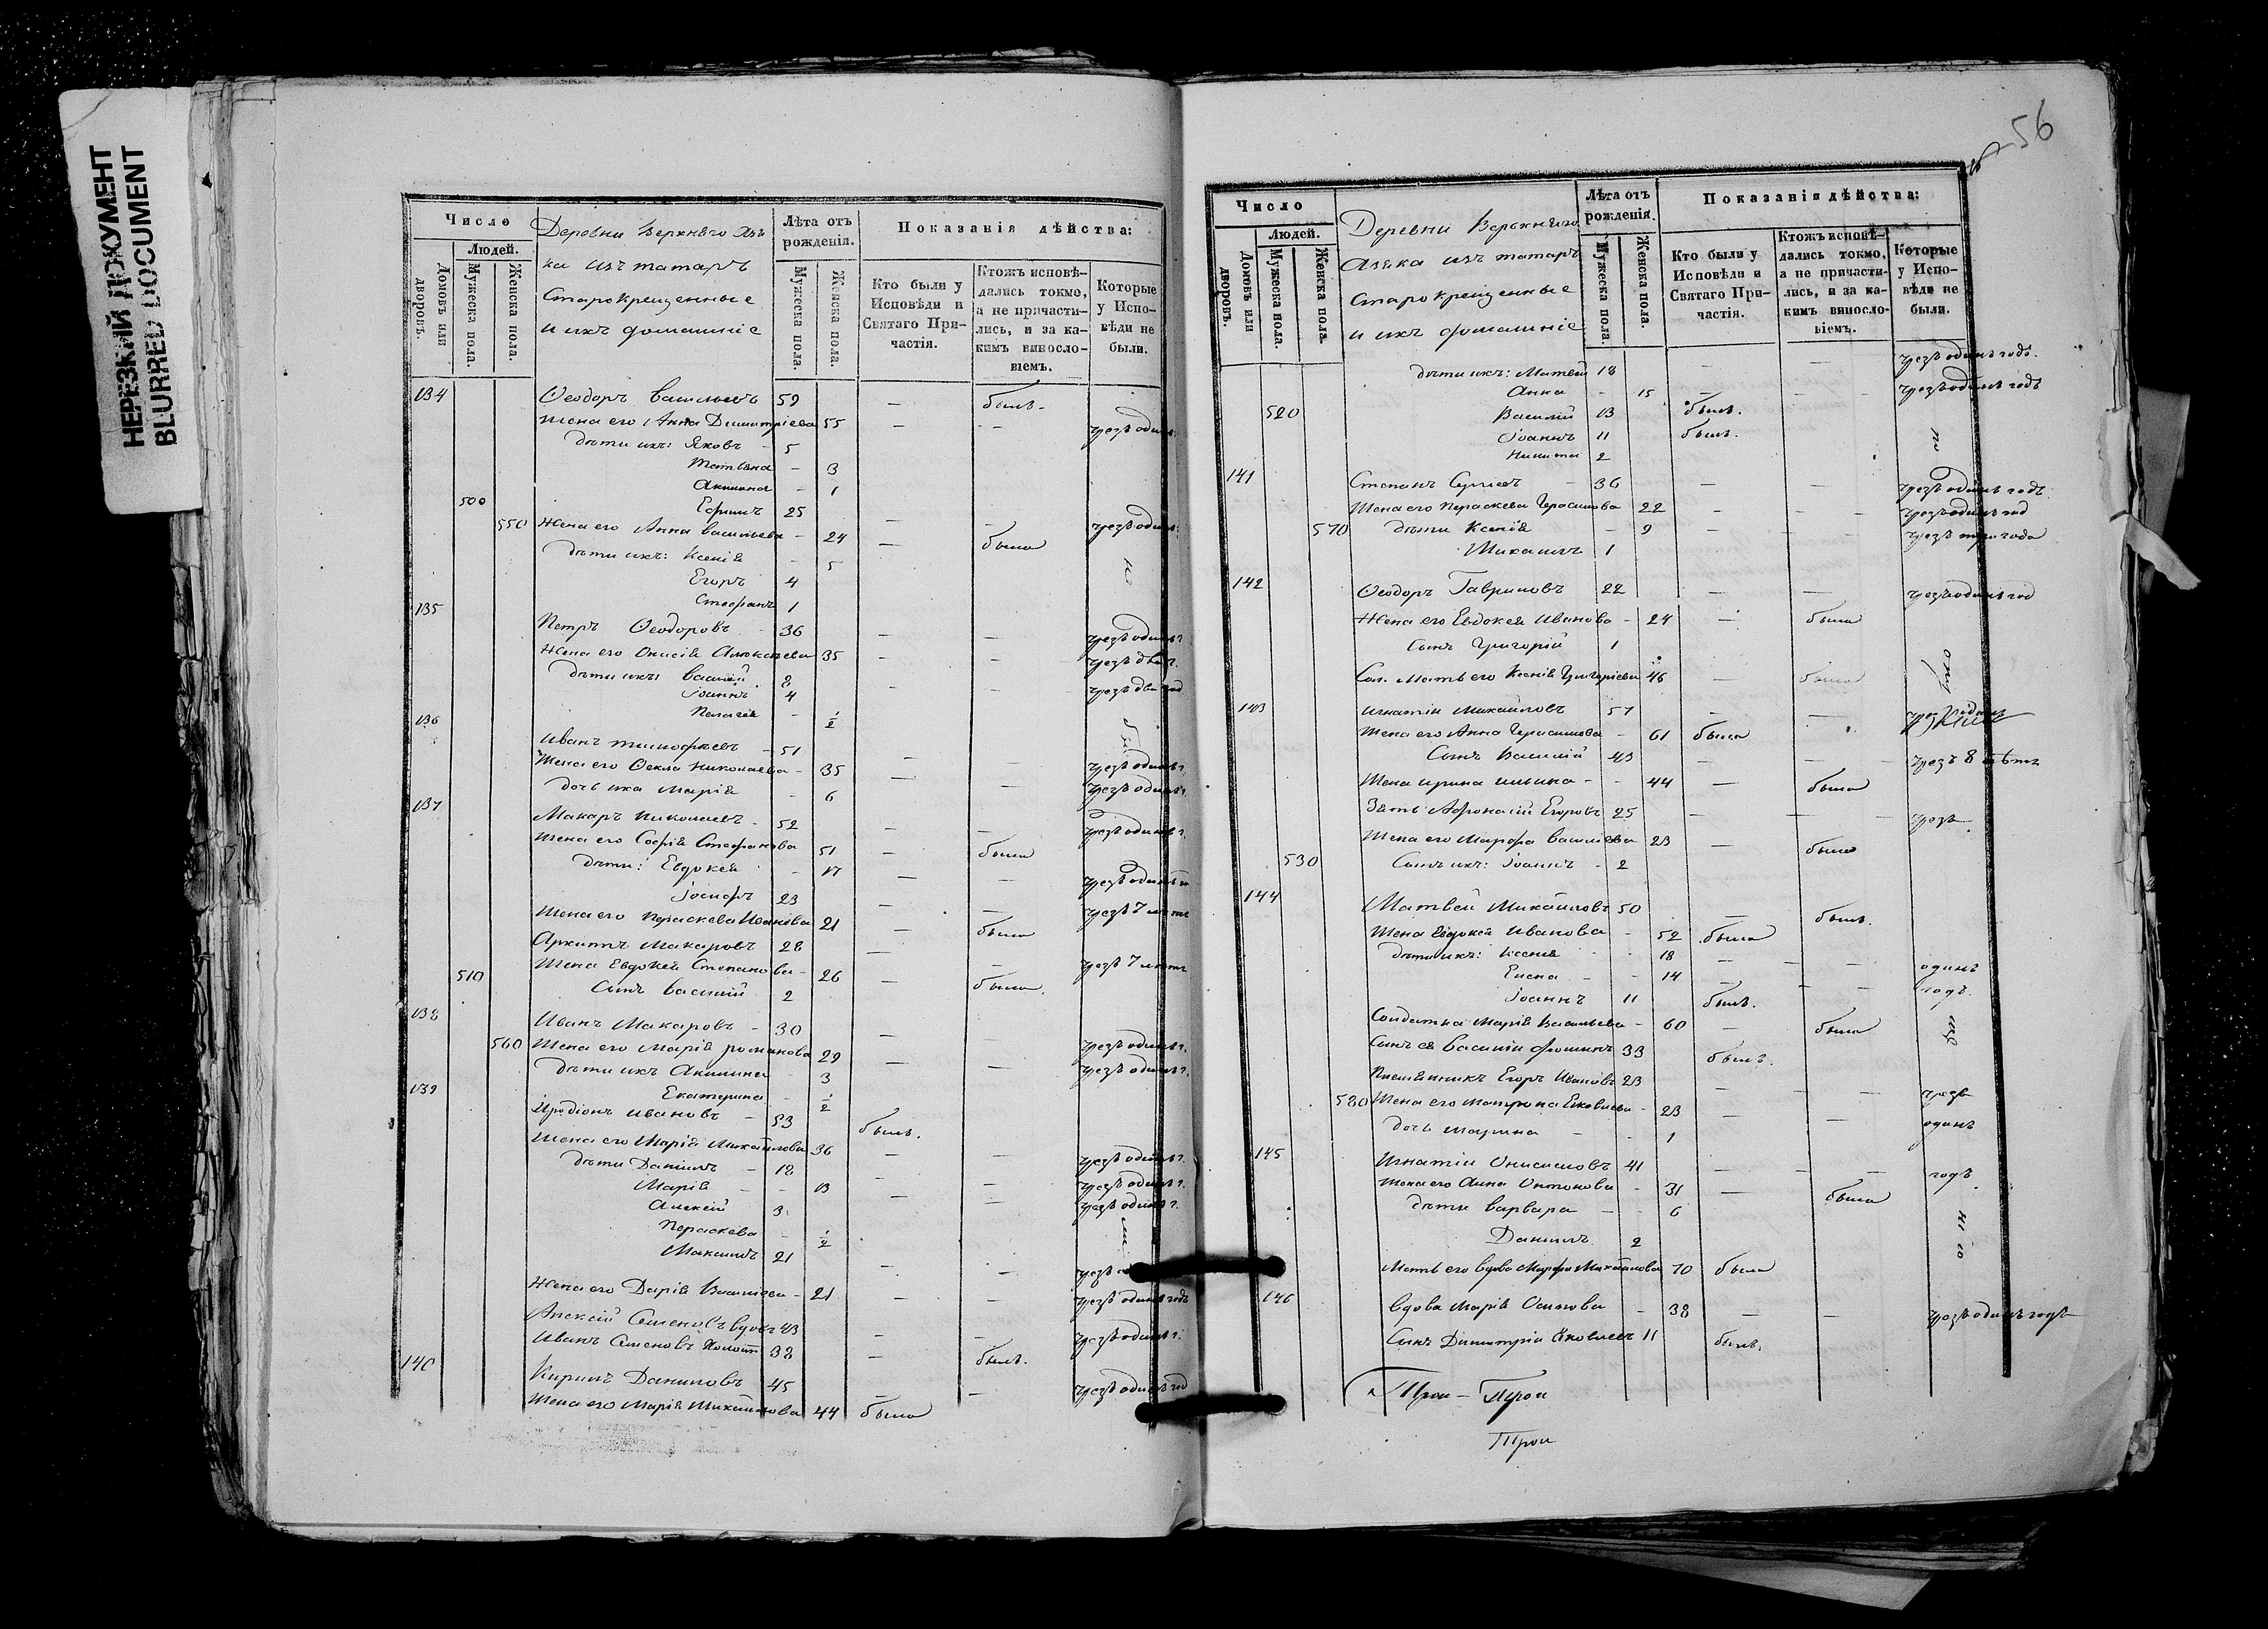 НЕРЕЗКИЙ ДОКУМЕНТ
BLURRED DOCUMENT
Число
Людей.
Домовъ или дворовъ.
Мужеска пола.
Женска пола.
Деревни Верхняго Азя
ка изъ татаръ
Старокрещенные
и ихъ домашніе
Лѣта отъ рожденія.
Мужеска пола.
Женска пола.
Показанія дѣйства:
Кто были у Исповѣди и Святаго Причастія.
Ктожъ исповѣдались токмо, а не причастились, и за какимъ винословіемъ.
Которые у Исповѣди не были.
134 Ѳеодоръ Васильевъ 59 — былъ.
Жена его Анна Димитріева 55 — — чрезъ одинъ
Дѣти ихъ: Яковъ — 5
Татьяна — 3
Акилина — 1
500 Ефимъ 25 — — чрезъ одинъ
550 Жена его Анна Васильева — 24 — была
Дѣти ихъ: Ксенія — 5
Егоръ 4
Стефанъ 1
135 Петръ Ѳеодоровъ — 36 — — чрезъ одинъ г.
Жена его Онисія Алексѣева 35 — — чрезъ два г.
Дѣти ихъ: Василій 8 — — чрезъ два год
Іоаннъ 4
Пелагія — 1/2
136 Иванъ Тимофѣевъ — 51 — — чрезъ одинъ г.
Жена его Ѳекла Николаева — 35 — — чрезъ одинъ г.
дочь ихъ Марія — 6
137 Макаръ Николаевъ — 52 — — чрезъ одинъ г.
Жена его Софія Стефанова 51 — была
Дѣти: Евдокія — 17 — — чрезъ одинъ
Іосифъ 23 — — чрезъ 7 лѣтъ
Жена его Параскева Иванова 21 — была
Архипъ Макаровъ 28 — — чрезъ 7 лѣтъ
Жена Евдокія Степанова — 26 — была.
510 Сынъ Василій 2
138 Иванъ Макаровъ — 30 — — чрезъ одинъ г.
560 Жена его Марія Романова 29 — — чрезъ одинъ г.
Дѣти ихъ Акилина — 3
Екатерина — 1/2
139 Иродіонъ Ивановъ — 53 былъ.
Жена его Марія Михайлова 36 — — чрезъ одинъ г.
Дѣти Даніилъ — 18 — — чрезъ одинъ г.
Марія — — 13 — — чрезъ одинъ г.
Алексій 3
Параскева — 1/2
Максимъ 21 — — чрезъ
Жена его Дарія Васильева — 21 — — чрезъ одинъ годъ
Алексій Семеновъ вдовъ 43 — — чрезъ одинъ г.
Иванъ Семеновъ Холост 38 — былъ.
140 Кирилъ Даниловъ 45 — — чрезъ одинъ год
Жена его Марія Михайлова 44 была
56
Число
Людей.
Домовъ или дворовъ.
Мужеска пола.
Женска пола.
Деревни Верхняго
Азяка изъ татаръ
Старокрещенные
и ихъ домашніе
Лѣта отъ рожденія.
Мужеска пола.
Женска пола.
Показанія дѣйства:
Кто были у Исповѣди и Святаго Причастія.
Ктожъ исповѣдались токмо, а не причастились, и за какимъ винословіемъ.
Которые у Исповѣди не были.
Дѣти ихъ: Матвей 18 — — чрезъ одинъ годъ.
Анна — 15 — — чрезъ одинъ годъ
520 Василій 13 былъ.
Іоаннъ 11 былъ.
Никита 2
141 Степанъ Сергіевъ — 36 — — чрезъ одинъ годъ
Жена его Параскева Герасимова 22 — — чрезъ одинъ год
570 Дѣти Ксенія — 9 — чрезъ три года
Михаилъ 1
142 Ѳеодоръ Гавриловъ 22 — — чрезъ одинъ год
Жена его Евдокія Иванова — 24 — была
Сынъ Григорій 1
Сол. Мать его Ксенія Григоріева 46 — была
143 Игнатій Михайловъ 57 — —
Жена его Анна Герасимова — 61 была
Сынъ Василій 43 — — чрезъ 8 лѣтъ
Жена Ирина Ильина — 44 — была
Зять Афонасій Егоровъ 25 — — чрезъ
Жена его Марфа Васильева 23 — была
530 Сынъ ихъ: Іоаннъ — 2
144 Матвей Михайловъ 50 — былъ.
Жена Евдокія Иванова — 52 была
Дѣти ихъ: Ксенія — 18 — — одинъ
Елена — 14 — — годъ.
Іоаннъ 11 былъ.
Солдатка Марія Васильева — 60 — была
Сынъ ея Василій 33 былъ.
Племянникъ Егоръ Ивановъ 23 — — чрезъ
580 Жена его Матрона Яковлева — 23 — — одинъ
дочь Марина — 1
145 Игнатій Онисимовъ 41 — — годъ
Жена его Анна Антонова — 31 — была
Дѣти Варвара — 6
Даніилъ 2
Мать его вдова Марфа Михайлова 70 была
146 Вдова Марія Осипова — 38 — — чрезъ одинъ годъ
Сынъ Димитрій Яковлевъ 11 былъ.
Трои — Трои
Трои